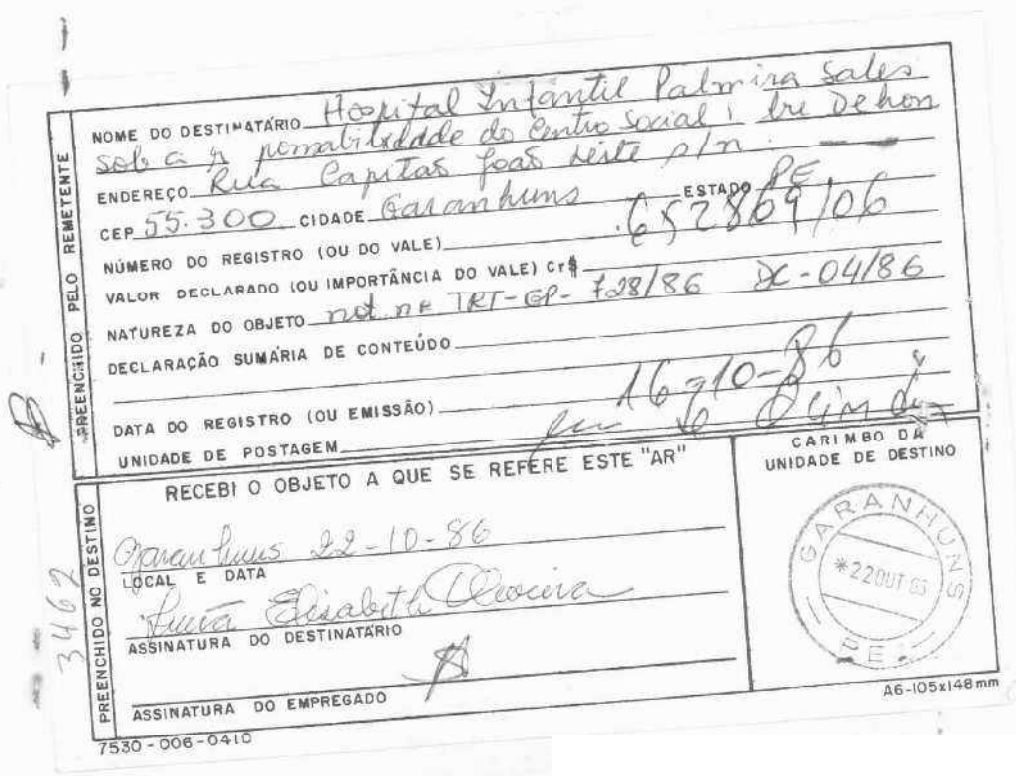 PREENCHIDO PELO REMETENTE
NOME DO DESTINATÁRIO Hospital Infantil Palmira Sales
sob a ponsabilidade do Centro Social Dehon
ENDEREÇO Rua Capitão João Leite s/n.
CEP 55.300 CIDADE Garanhuns ESTADO PE
NÚMERO DO REGISTRO (OU DO VALE) 652869/06
VALOR DECLARADO (OU IMPORTÂNCIA DO VALE) Cr$
NATUREZA DO OBJETO not. nº TRT-GP-728/86 DC-04/86
DECLARAÇÃO SUMÁRIA DE CONTEÚDO
DATA DO REGISTRO (OU EMISSÃO) 16-10-86
UNIDADE DE POSTAGEM
PREENCHIDO NO DESTINO
RECEBI O OBJETO A QUE SE REFERE ESTE "AR"
Garanhuns 22-10-86
LOCAL E DATA
Elisabeth Oliveira
ASSINATURA DO DESTINATÁRIO
ASSINATURA DO EMPREGADO
CARIMBO DA
UNIDADE DE DESTINO
GARANHUNS
*22OUT
PE
3462
7530-006-0410
A6-105x148mm